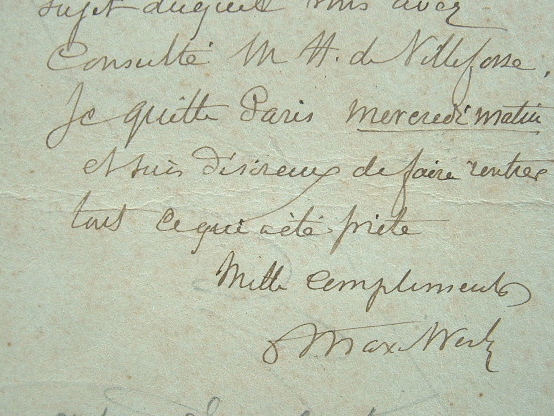 sujet duquel vous avez
Consulté M H. de Villefosse,
Je quitte Paris mercredi matin
et suis désireux de faire rentrer
tout ce qui a été prété
Mille compliments
Max Werly